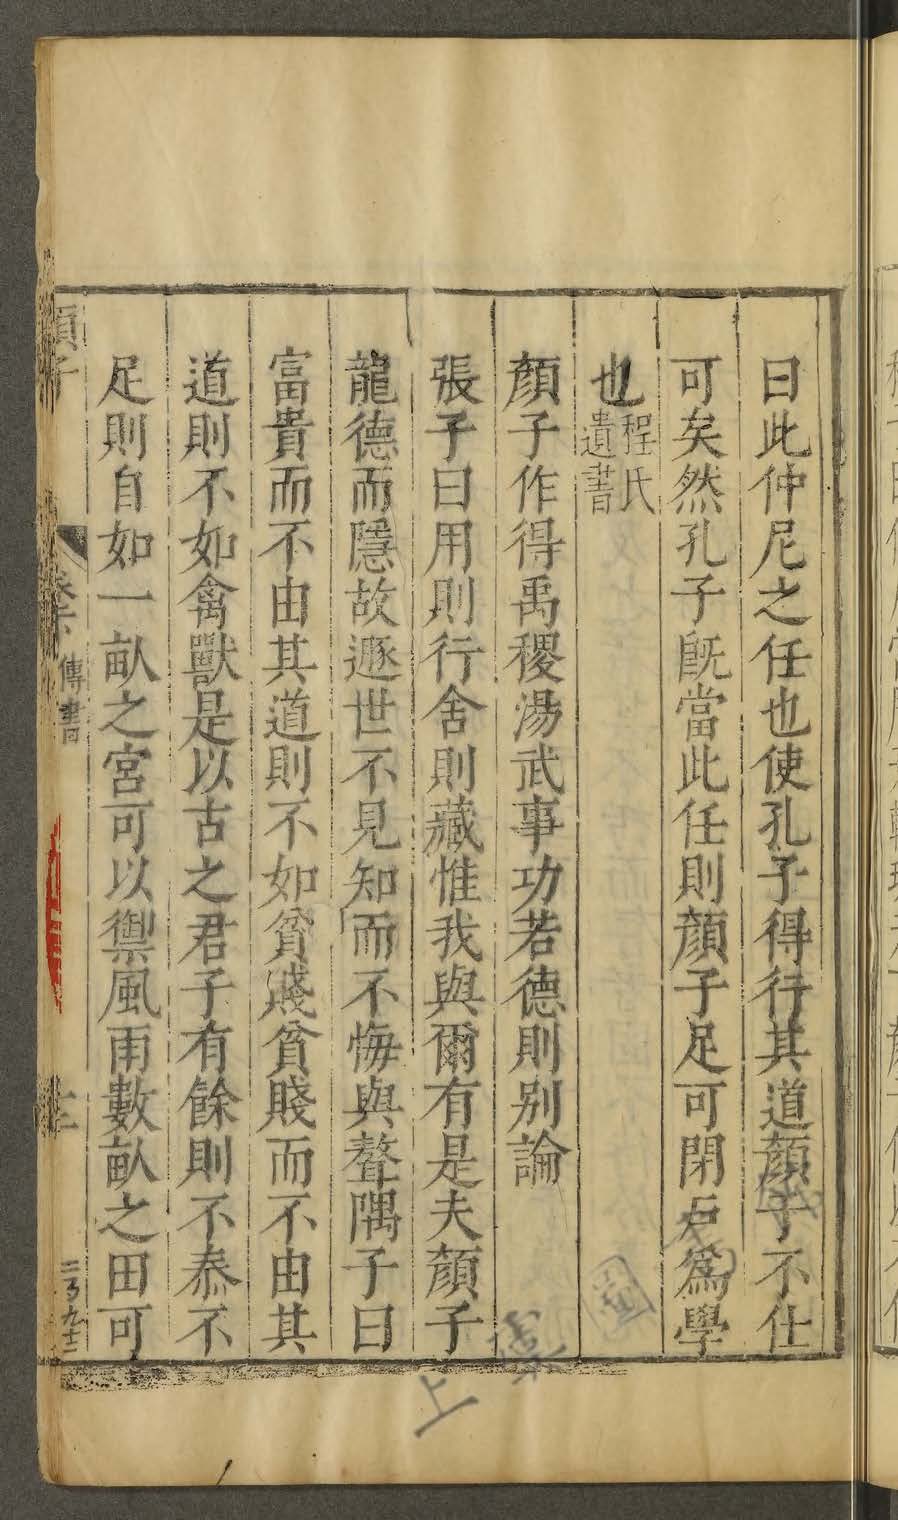 曰此仲尼之任也使孔子得行其道顔子不仕
可矣然孔子旣當此任則顔子足可閉戶爲學
也程氏遺書
顔子作得禹稷湯武事功若德則别論
張子曰用則行舍則藏惟我與爾有是夫顔子
龍德而隱故遯世不見知而不悔與聱隅子曰
富貴而不由其道則不如貧賤貧賤而不由其
道則不如禽獸是以古之君子有餘則不泰不
足則自如一畝之宮可以禦風雨數畝之田可
顔子
傳書